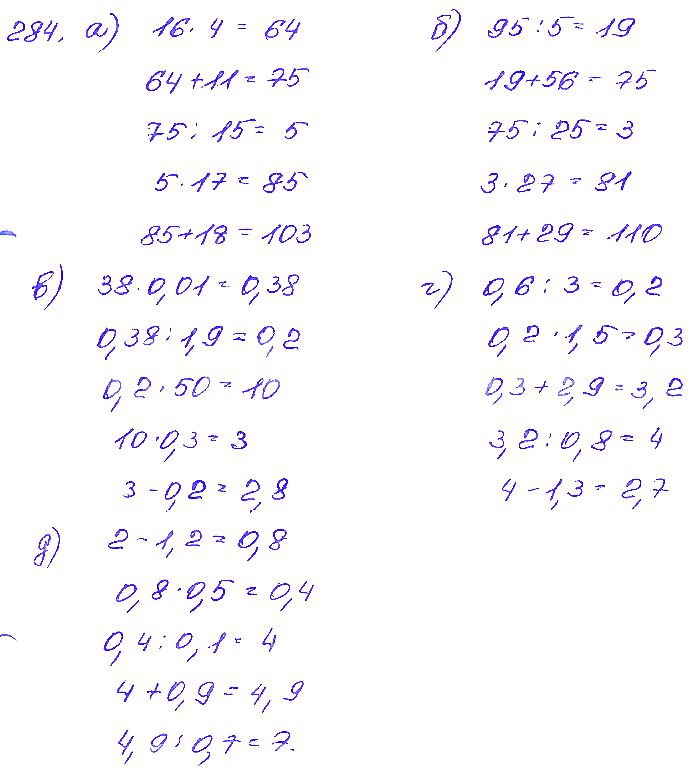 284. а) 16 · 4 = 64
64 + 11 = 75
75 : 15 = 5
5 · 17 = 85
85 + 18 = 103
б) 95 : 5 = 19
19 + 56 = 75
75 : 25 = 3
3 · 27 = 81
81 + 29 = 110
в) 38 · 0,01 = 0,38
0,38 : 1,9 = 0,2
0,2 · 50 = 10
10 · 0,3 = 3
3 - 0,2 = 2,8
г) 0,6 : 3 = 0,2
0,2 · 1,5 = 0,3
0,3 + 2,9 = 3,2
3,2 : 0,8 = 4
4 - 1,3 = 2,7
д) 2 - 1,2 = 0,8
0,8 · 0,5 = 0,4
0,4 : 0,1 = 4
4 + 0,9 = 4,9
4,9 : 0,7 = 7.